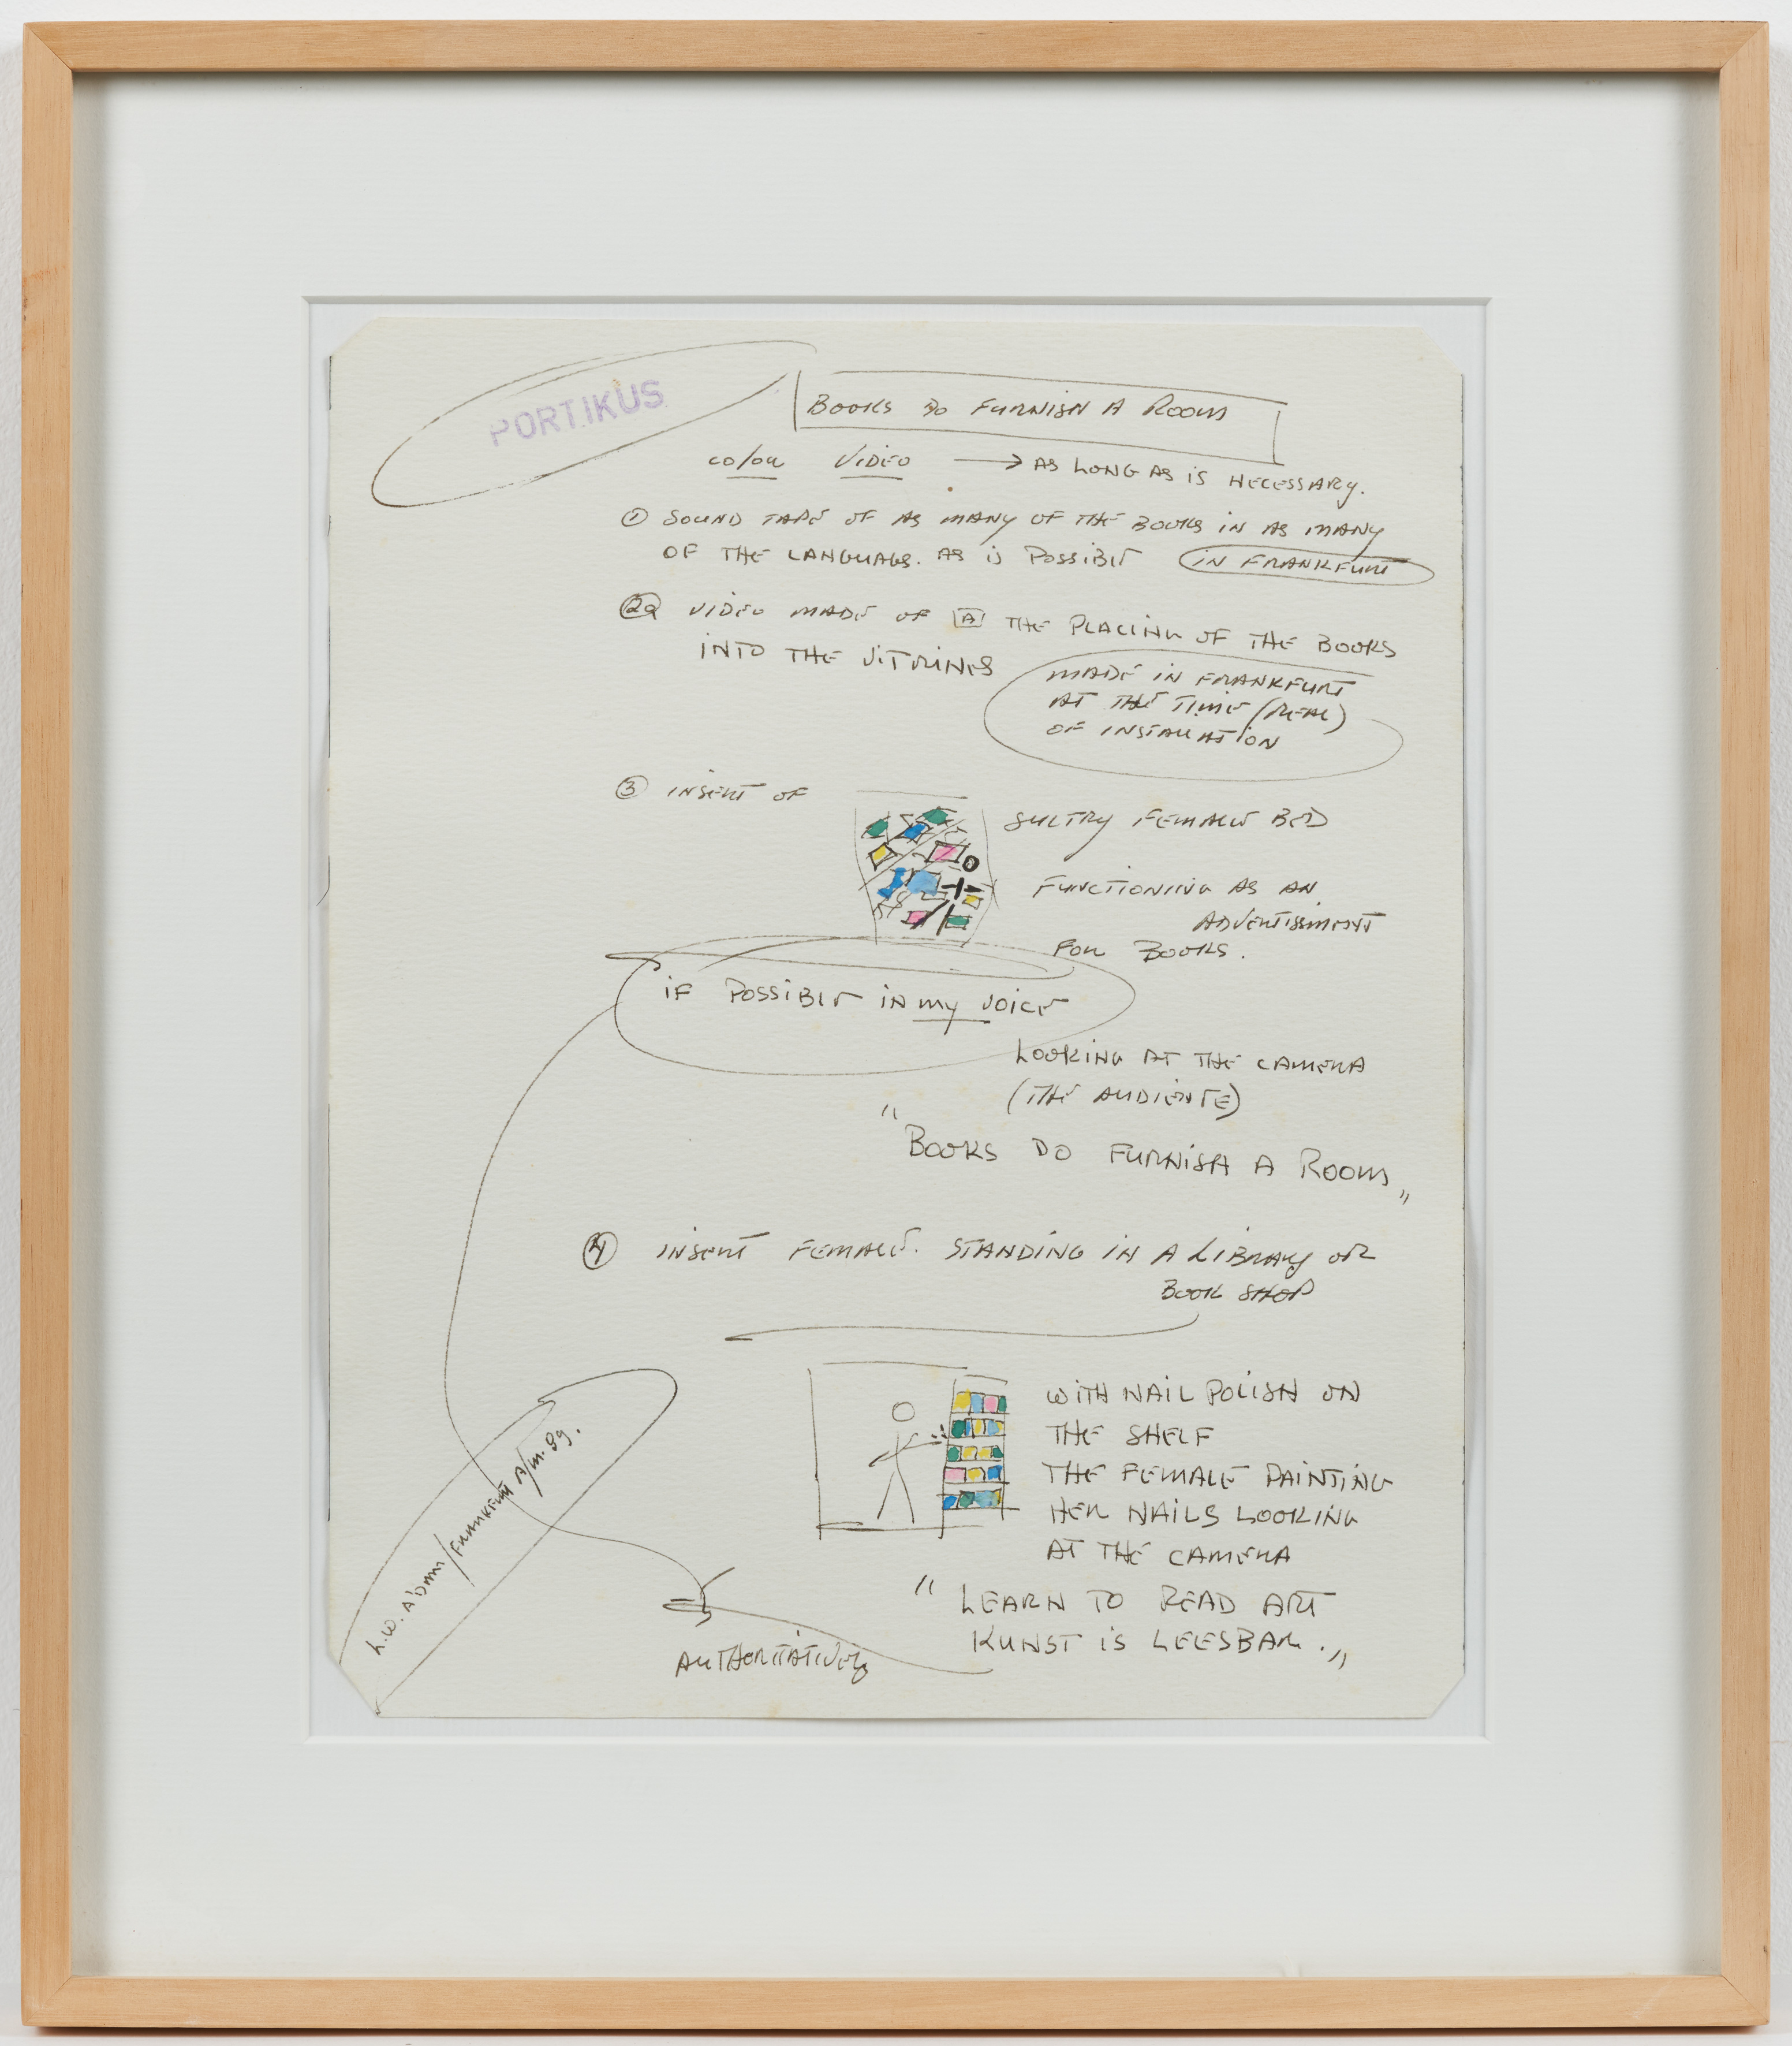 PORTIKUS
BOOKS DO FURNISH A ROOM
COLOR VIDEO → AS LONG AS IS NECESSARY.
① SOUND TAPE OF AS MANY OF THE BOOKS IN AS MANY
OF THE LANGUAGS. AS IS POSSIBLE IN FRANKFURT
②a VIDEO MADE OF A THE PLACING OF THE BOOKS
INTO THE VITRINES
MADE IN FRANKFURT
AT THE TIME (REAL)
OF INSTALLATION
③ INSERT OF
SULTRY FEMALE
FUNCTIONING AS AN
ADVERTISSMENT
FOR BOOKS.
IF POSSIBLE IN MY VOICE
LOOKING AT THE CAMERA
(THE AUDIENCE)
"BOOKS DO FURNISH A ROOM"
④ INSERT FEMALE. STANDING IN A LIBRARY OR
BOOK SHOP
WITH NAIL POLISH ON
THE SHELF
THE FEMALE PAINTING
HER NAILS LOOKING
AT THE CAMERA
"LEARN TO READ ART
KUNST IS LEESBAR."
AUTHORITATIVELY
L.W. A'DAM/FRANKFURT A/M. 89.